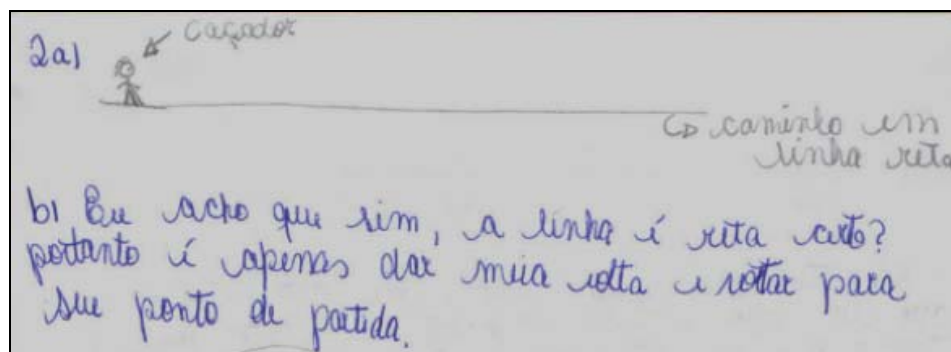 2a) caçador
↳ caminho em
linha reta
b) Eu acho que sim, a linha é reta certo?
portanto é apenas dar meia volta e voltar para
seu ponto de partida.